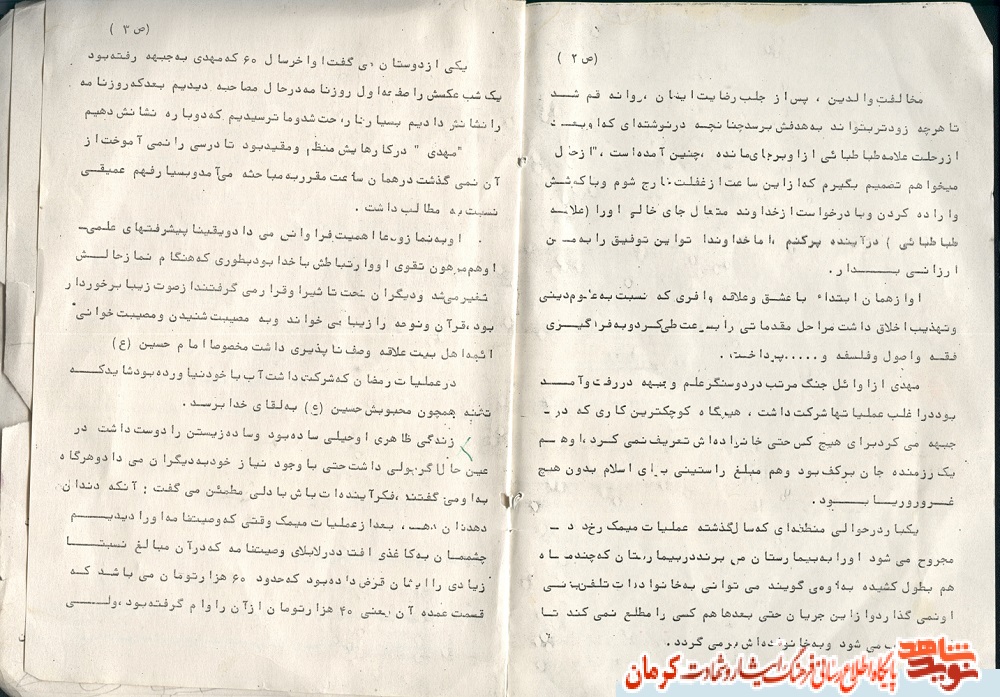 (ص ۲)
مخالفت والدین ، پس از جلب رضایت ایشان ، روانه قم شد
تا هرچه زودتر بتواند به هدفش برسد چنانچه درنوشته‌ای که او بعد
از رحلت علامه طباطبائی از او برجای مانده ، چنین آمده است ، "از حال
میخواهم تصمیم بگیرم که از این ساعت از غفلت خارج شوم و با کوشش
و اراده کردن و با درخواست از خداوند متعال جای خالی او را (علامه
طباطبائی) در آینده پرکنم ، اما خداوندا تو این توفیق را به من
ارزانی بدار .
او از همان ابتداء با عشق و علاقه وافری که نسبت به علوم دینی
و تهذیب اخلاق داشت مراحل مقدماتی را بسرعت طی کرد و به فراگیری
فقه و اصول و فلسفه و ..... پرداخت .
مهدی از اوائل جنگ مرتب در دو سنگر علم و جبهه در رفت و آمد
بود در اغلب عملیاتها شرکت داشت ، هیچگاه کوچکترین کاری که در
جبهه می کرد برای هیچ کس حتی خانواده‌اش تعریف نمی کرد ، او هم
یک رزمنده جان برکف بود و هم مبلغ راستینی برای اسلام بدون هیچ
غرور و ریا بود .
یکبار در حوالی منطقه‌ای که سال گذشته عملیات میمک رخ داد
مجروح می شود او را به بیمارستان می برند در بیمارستان که چند ماه
هم بطول کشیده به او می گویند می توانی به خانواده‌ات تلفن بزنی
او نمی گذارد و از این جریان حتی بعدها هم کسی را مطلع نمی کند تا
می شود و به خانواده‌اش برمی گردد .
(ص ۳)
یکی از دوستان می گفت اواخر سال ۶۰ که مهدی به جبهه رفته بود
یک شب عکسش را صفحه اول روزنامه در حال مصاحبه دیدیم بعد که روزنامه
را نشانش دادیم بسیار ناراحت شد و ما ترسیدیم که دوباره نشانش دهیم
"مهدی " در کارهایش منظم و مقید بود تا درسی را نمی آموخت از
آن نمی گذشت در همان ساعت مقرر به مباحثه می آمد و بسیار فهم عمیقی
نسبت به مطالب داشت .
او به نماز و دعا اهمیت فراوانی می داد و یقینا پیشرفتهای علمی
او هم مرهون تقوی او و ارتباطش با خدا بود بطوری که هنگام نماز حالش
تغییر می شد و دیگران تحت تاثیر او قرار می گرفتند از صوت زیبا برخوردار
بود ، قرآن و نوحه را زیبا می خواند و به مصیبت شنیدن و مصیبت خوانی
ائمه اهل بیت علاقه وصف ناپذیری داشت مخصوصا امام حسین (ع)
در عملیات رمضان که شرکت داشت آب با خود نیاورده بود شاید که
تشنه همچون محبوبش حسین (ع) به لقای خدا برسد .
زندگی ظاهری او خیلی ساده بود و ساده زیستن را دوست داشت در
عین حال گرچه پولی داشت حتی با وجود نیاز خود به دیگران می داد و هرگاه
به او می گفتند ، فکر آینده‌ات باش با دلی مطمئن می گفت : آنکه دندان
دهد نان دهد ، بعد از عملیات میمک وقتی که وصیتنامه او را دیدیم
چشممان به کاغذی افتاد در لابلای وصیتنامه که در آن مبالغ نسبتا
زیادی را ایشان قرض داده بود که حدود ۶۰ هزار تومان می باشد که
قسمت عمده آن یعنی ۴۰ هزار تومان از آن را وام گرفته بود ، ولی
نوید شاهد
پایگاه اطلاع رسانی فرهنگ ایثار و شهادت کرمان